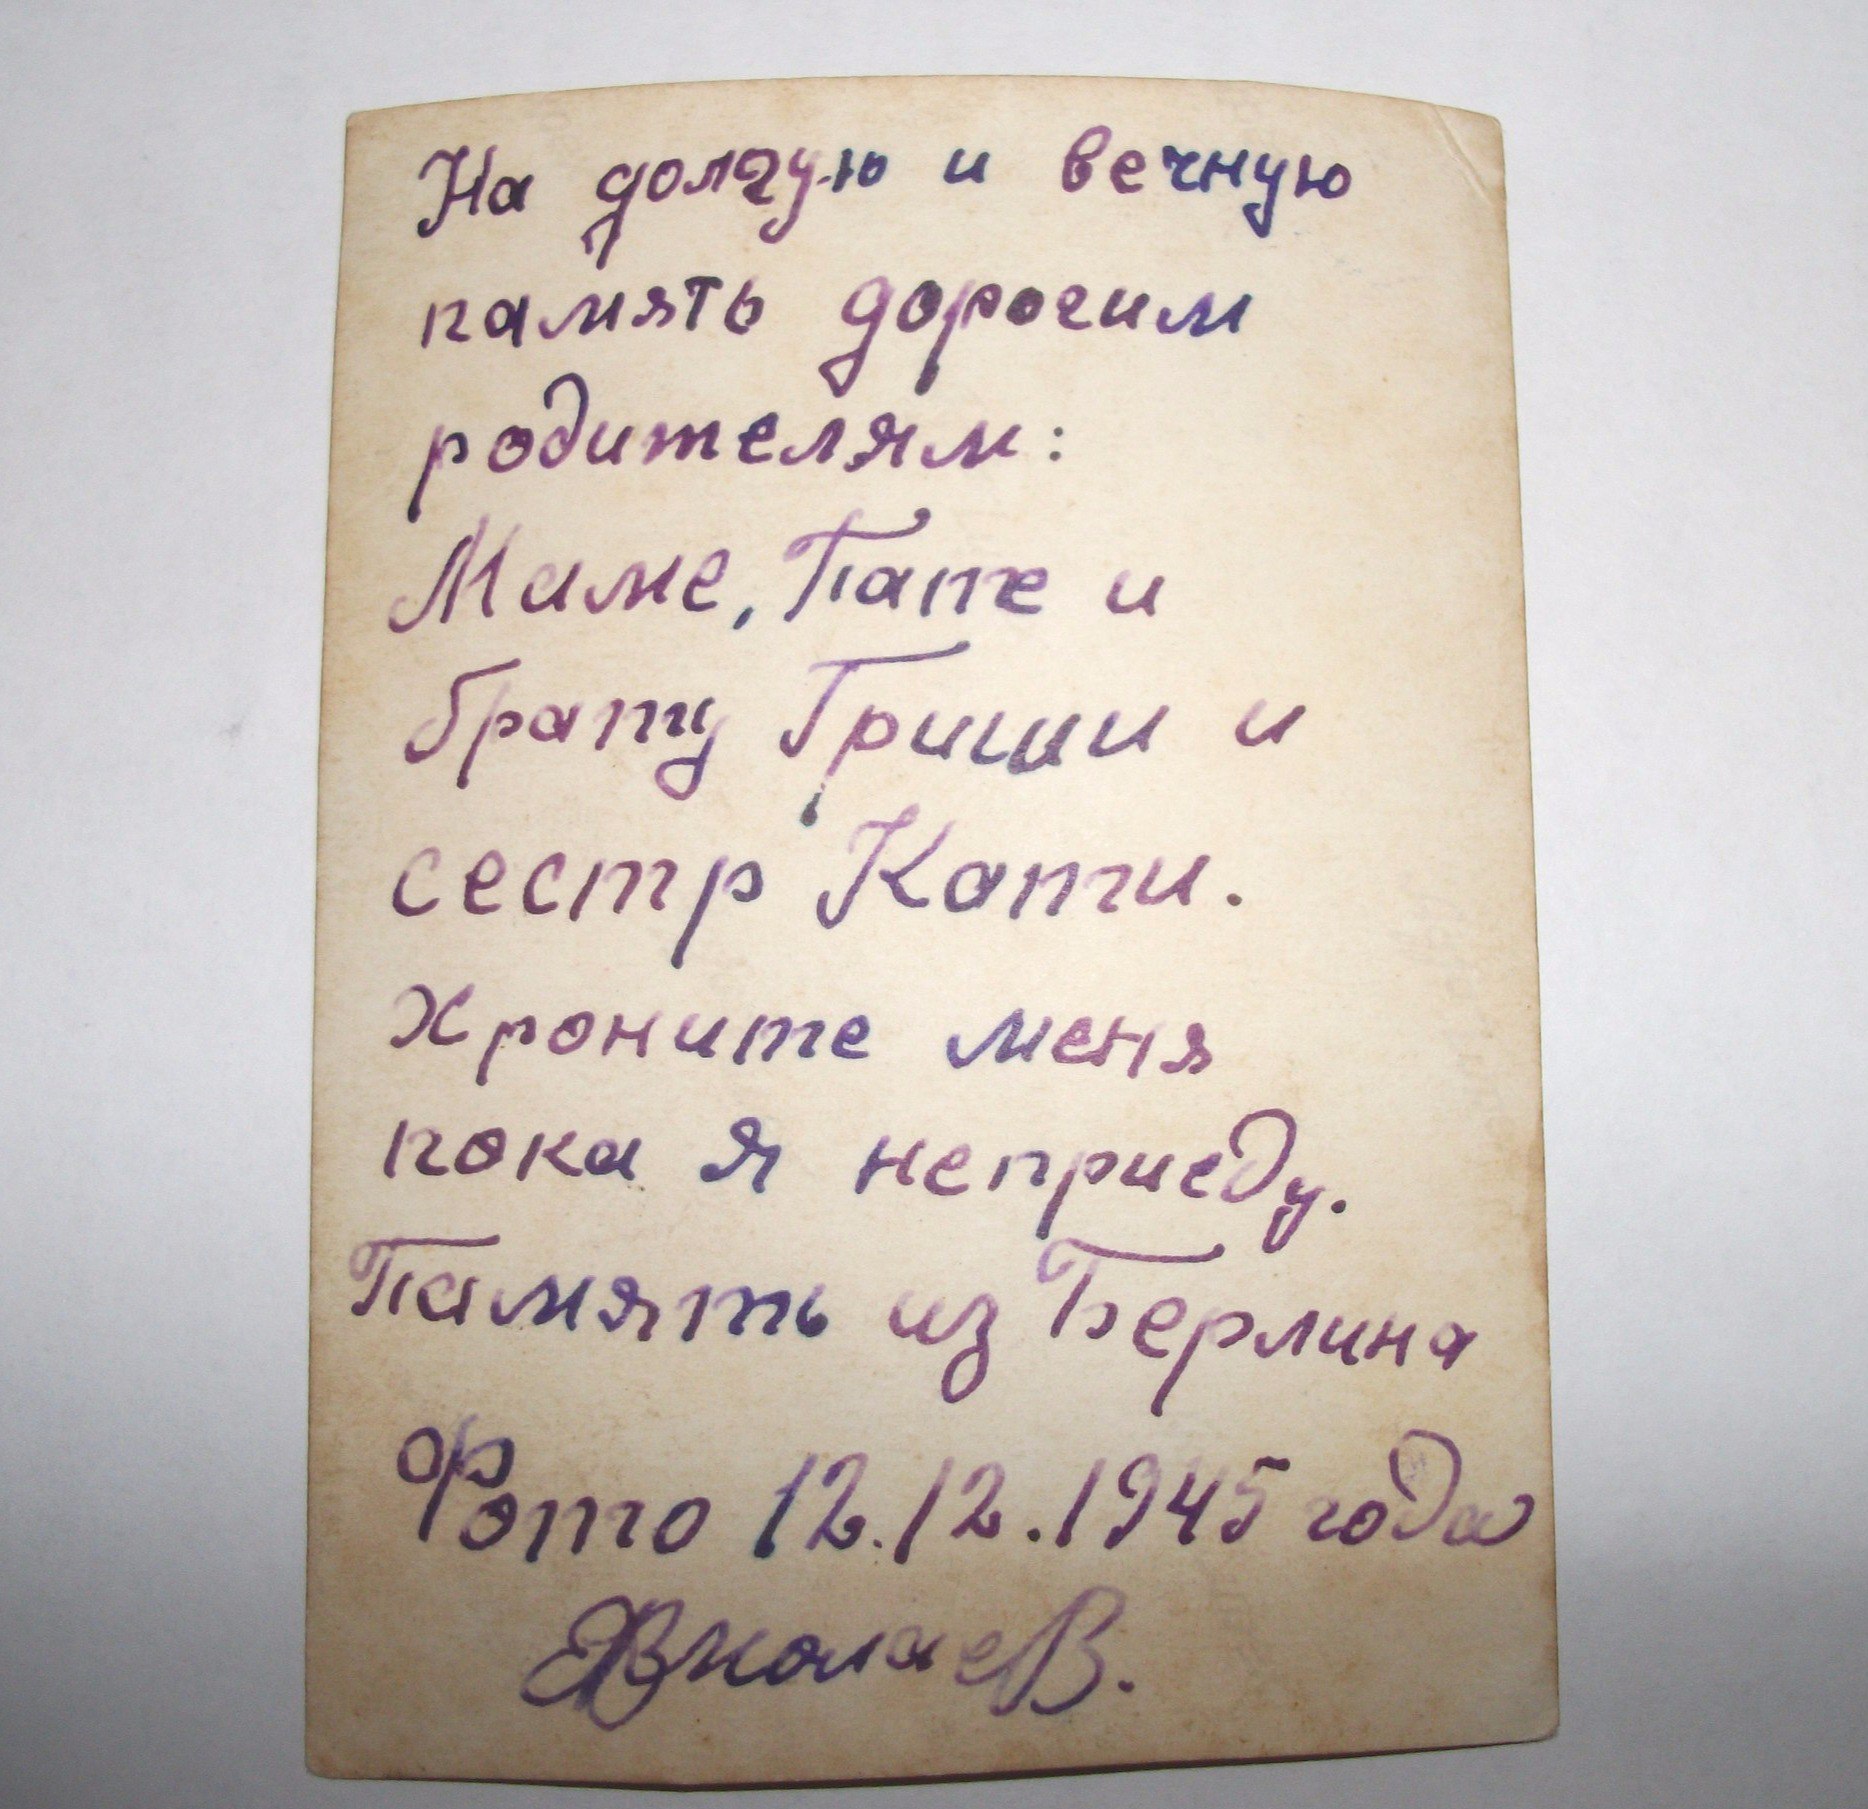 На долгую и вечную
память дорогим
родителям:
Маме, Папе и
брату Гриши и
сестр Кати.
Хроните меня
пока я неприеду.
Память из Берлина
Фото 12.12.1945 года